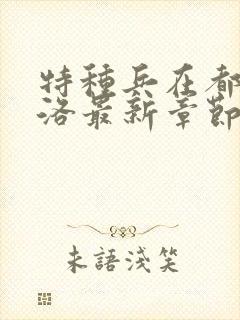 特種兵在都
洛最新章節
未語淺笑